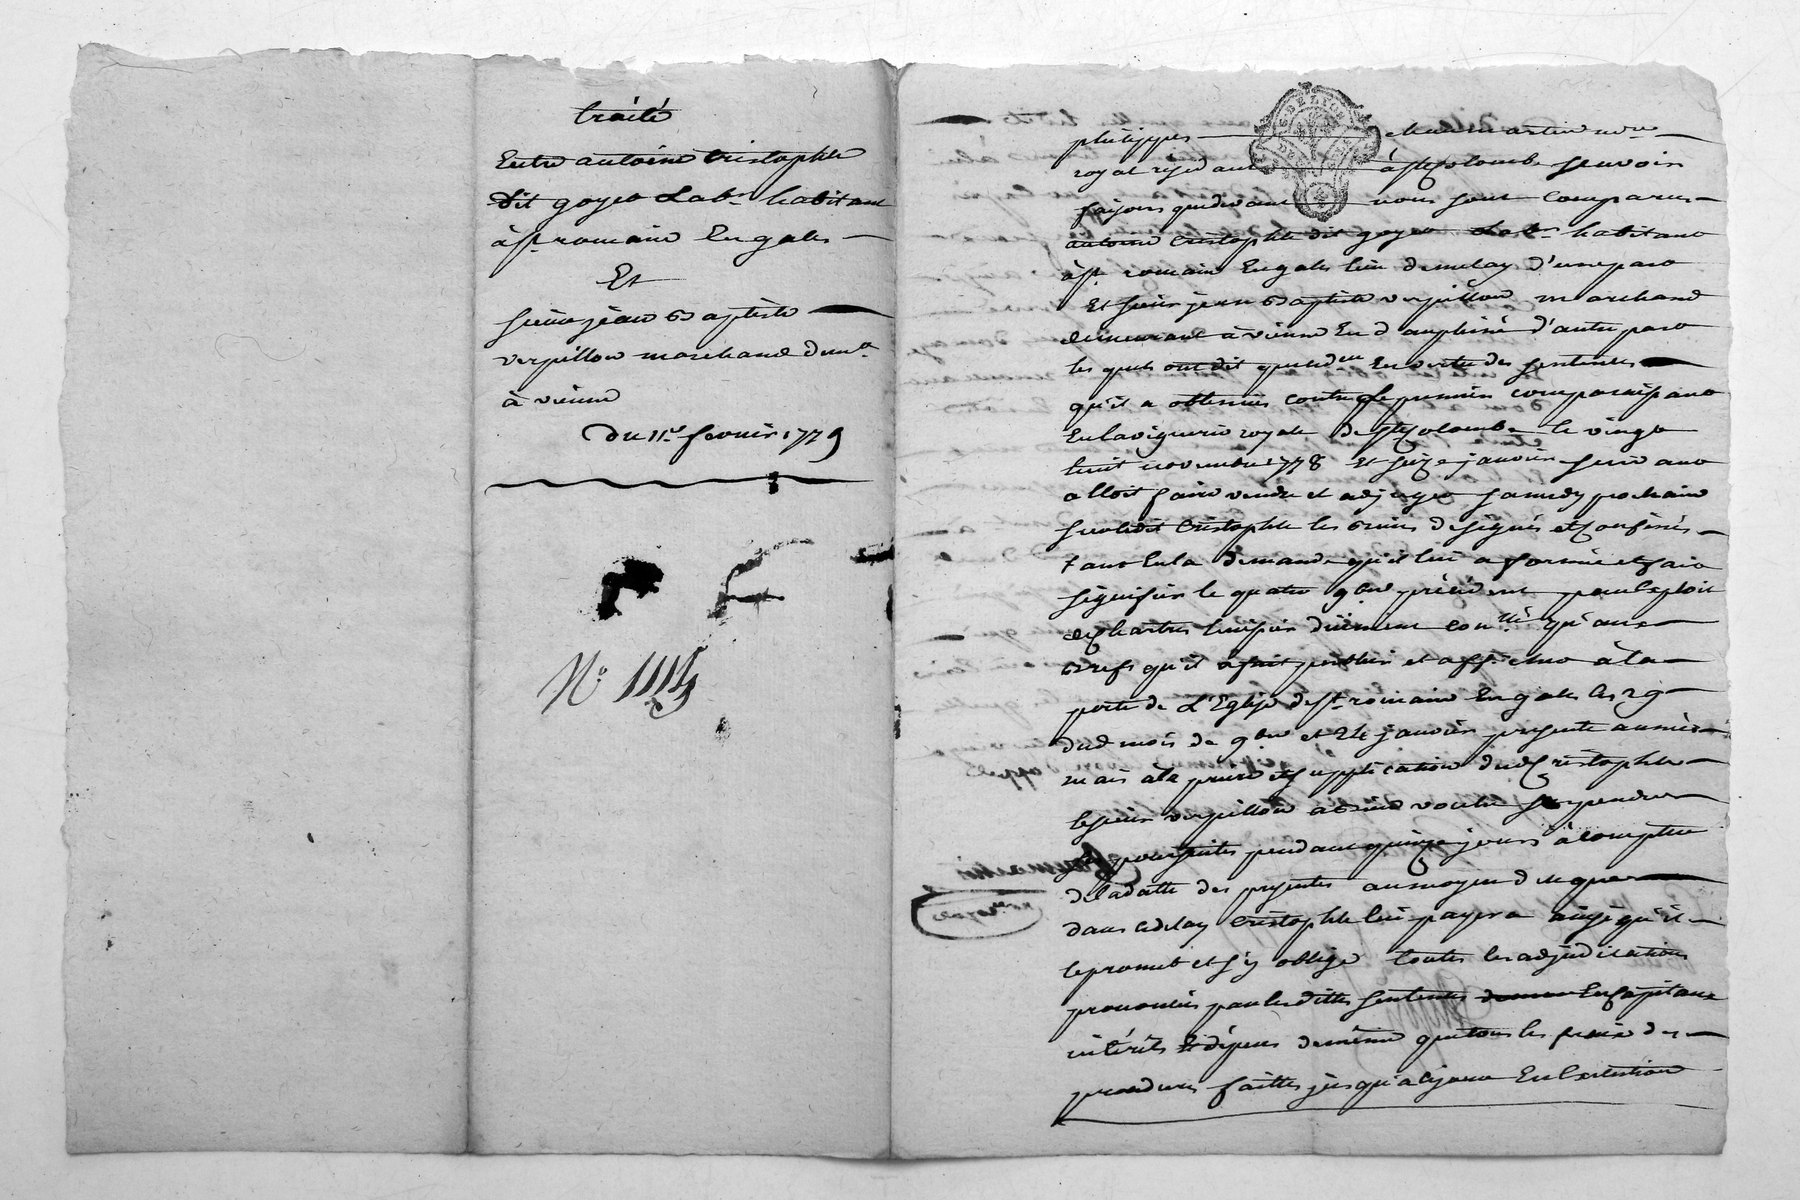 traité
Entre antoine Cristophle
dit goyet Labr. habitant
à st romain Engales
Et
sieur jean Baptiste
verpillon marchand demt.
à vienne
Du 11e fevrier 1779
No. 1114
philippes Chaumartin nore
royal residant à ste Colombe sçavoir
faisons que devant nous sont comparus
antoine Cristophle dit goyet Labr habitant
à st romain Engales lieu demelay d'une part
Et sieur jean Baptiste verpillon marchand
demeurant à vienne En dauphiné d'autre part
les quels ont dit que En vertu des sentences
qu'il a obtenues contre le premier comparaissant
En la viguerie royale de ste Colombe le vingt
huit novembre 1778 et seize janvier suivant
alloit faire vendre et adjuger samedy prochain
sur ledit Cristophle les biens designés et confinés
tant En la demande qu'il lui a formée et fait
signifier le quatre 9bre précédent par Exploit
de Chartres huissier duement conllé qu'aux
Brefs qu'il a fait publier et afficher à la
porte de L'Eglise de st romain En gales les 29
dud mois de 9bre et 24 janvier présente année
mais à la priere et supplication dud Cristophle
le sieur verpillon a Bien voulu suspendre
ses poursuites pendant quinze jours à compter
de la datte des presentes au moyen de que
dans ce delay Cristophle lui payera ainsi qu'il
le promet et s'y oblige toutes les adjudications
prononcées par lesdittes sentences En Capitaux
intérêts Et dépens de même que tous les fraix des
procedures faittes jusqu'à ce jour En Exécution